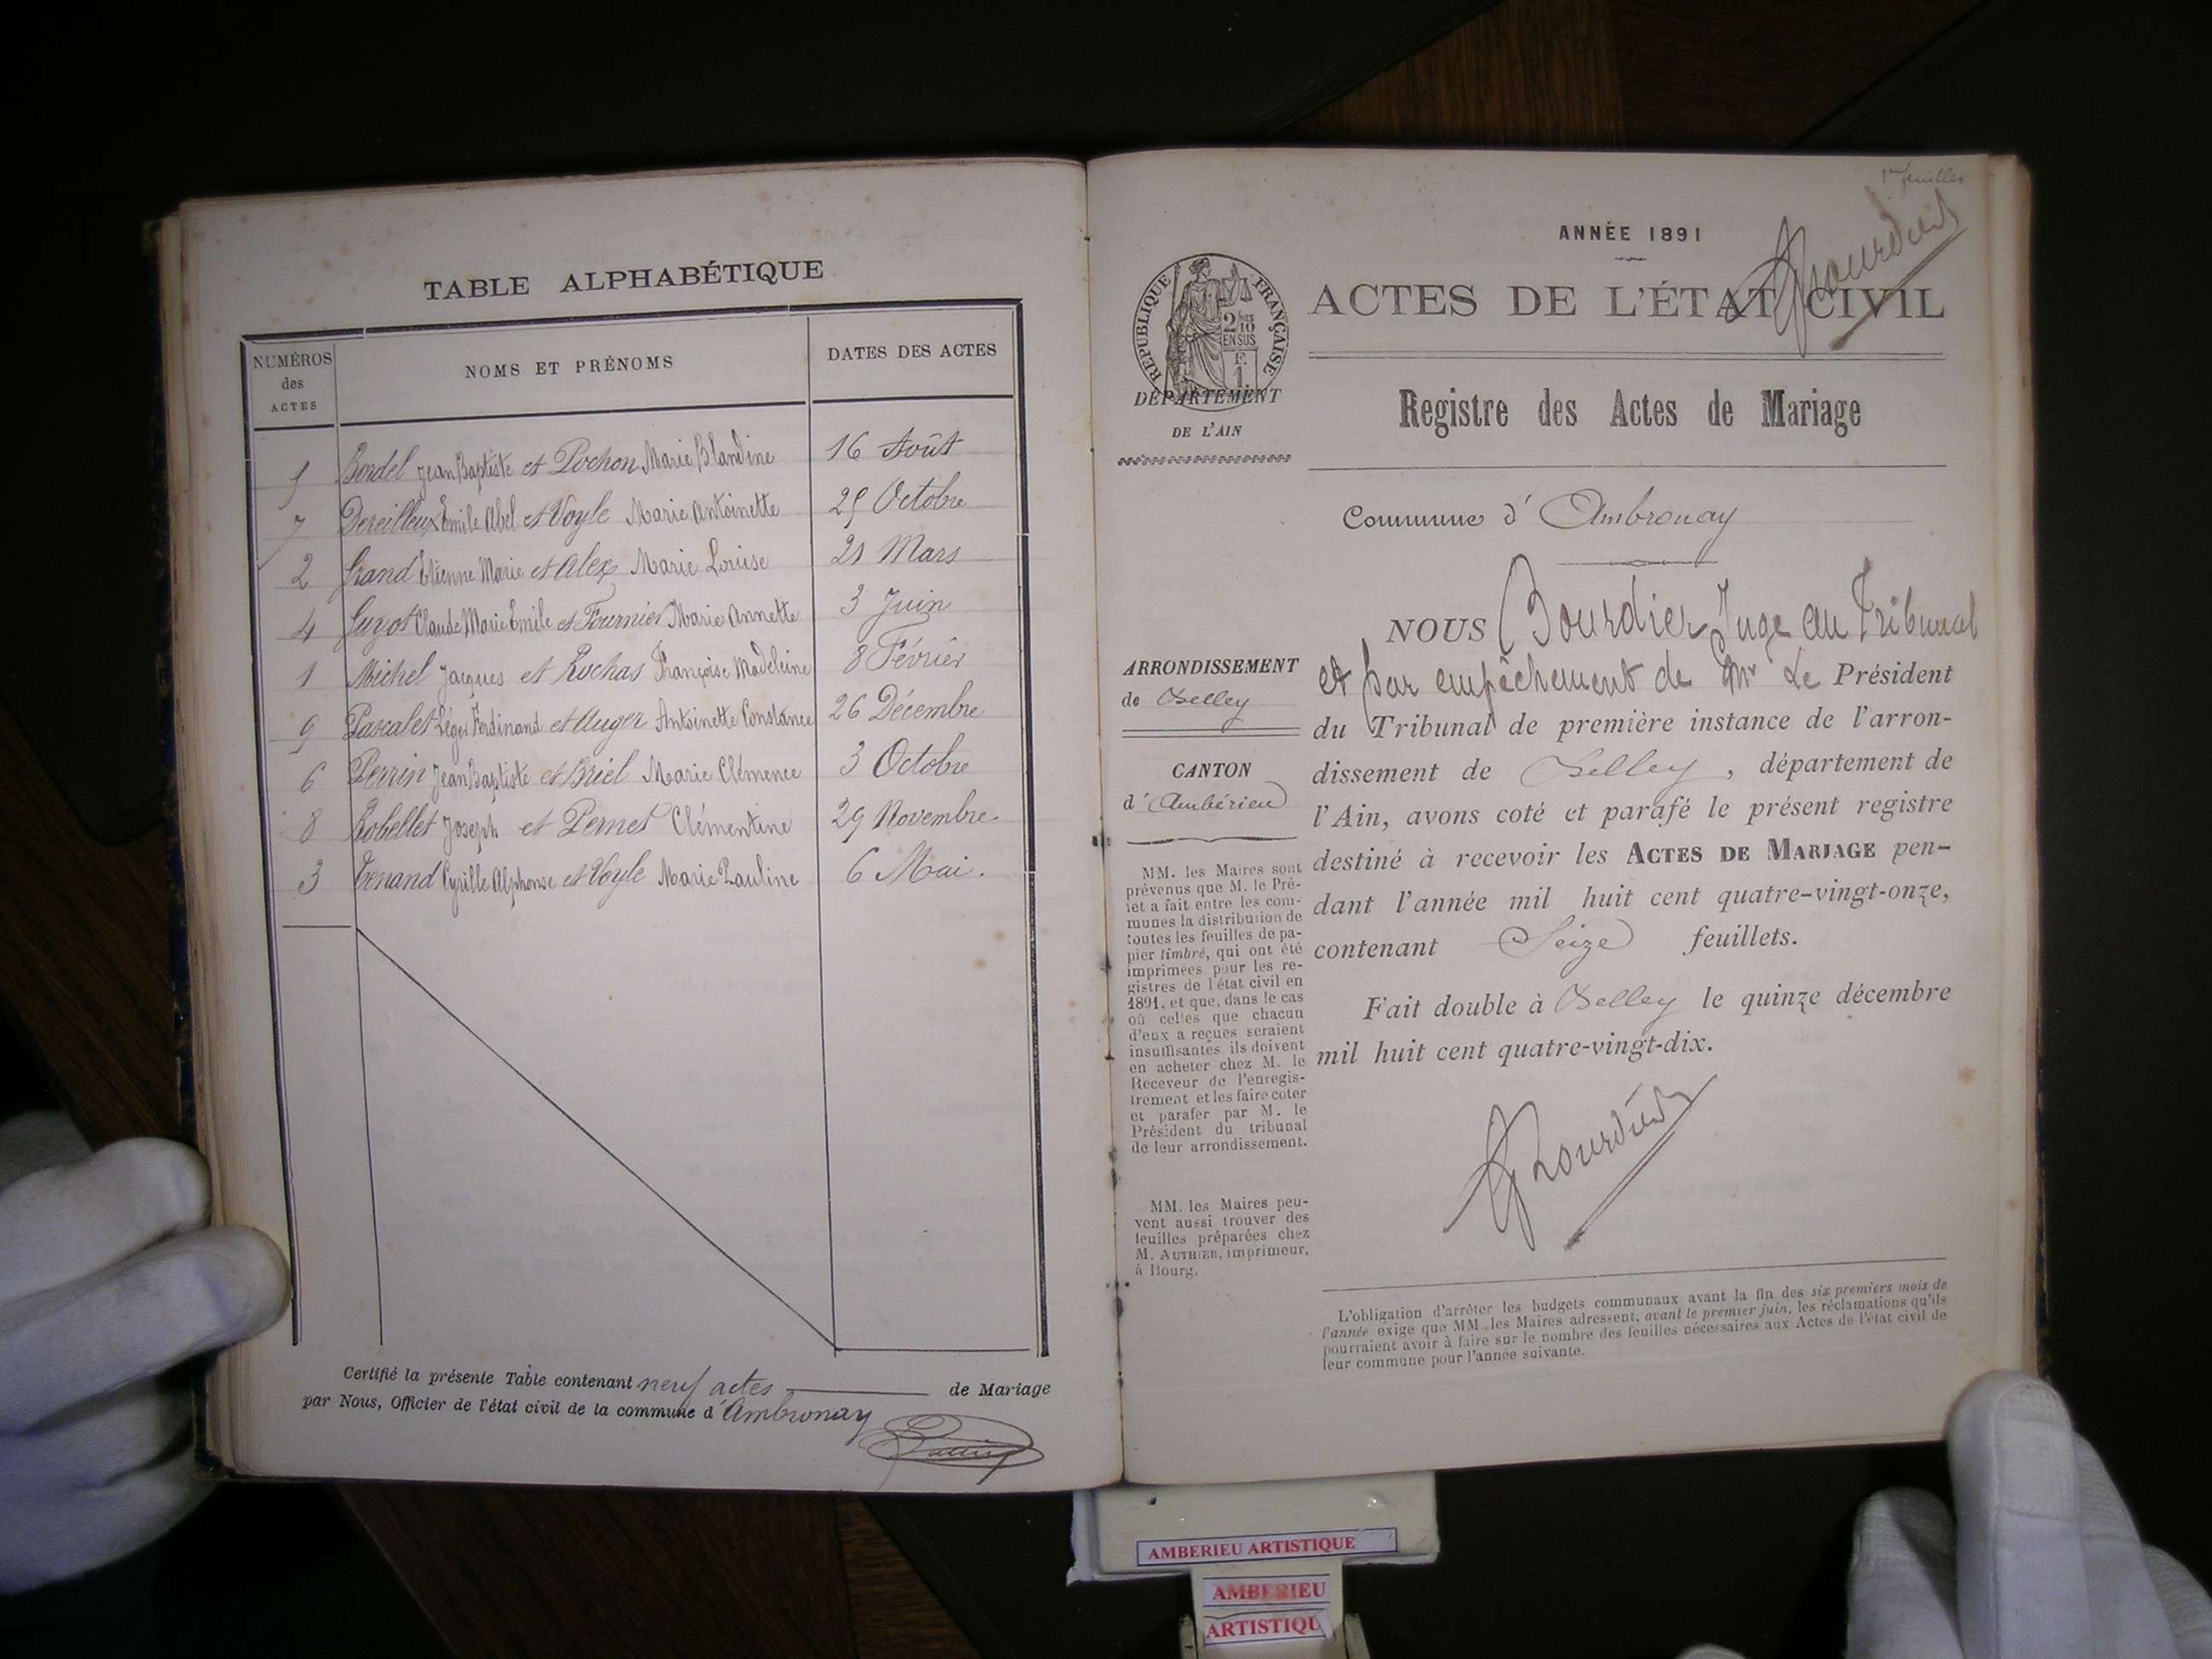 TABLE ALPHABÉTIQUE
NUMÉROS des ACTES NOMS ET PRÉNOMS DATES DES ACTES
5 Bordel Jean Baptiste et Pochon Marie Blandine 16 Août
7 Dereilleux Emile Abel et Voyle Marie Antoinette 25 Octobre
2 Grand Etienne Marie et Alex Marie Louise 21 Mars
4 Guyot Claude Marie Emile et Fournier Marie Annette 3 Juin
1 Michel Jacques et Rochas Françoise Madeleine 8 Février
9 Pascalet Léger Ferdinand et Auger Antoinette Constance 26 Décembre
6 Perrin Jean Baptiste et Briel Marie Clémence 3 Octobre
8 Robellet Joseph et Pernet Clémentine 29 Novembre
3 Tenand Cyrille Alphonse et Voyle Marie Pauline 6 Mai.
Certifié la présente Table contenant neuf actes de Mariage
par Nous, Officier de l'état civil de la commune d'Ambronay
1er feuillet
ANNÉE 1891
ACTES DE L'ÉTAT CIVIL
RÉPUBLIQUE FRANÇAISE
2/10 EN SUS
F. 1
DÉPARTEMENT
DE L'AIN
Registre des Actes de Mariage
Commune d' Ambronay
NOUS Bourdier Juge au Tribunal
et par empêchement de Mr Le Président
du Tribunal de première instance de l'arron-
dissement de Belley, département de
l'Ain, avons coté et parafé le présent registre
destiné à recevoir les ACTES DE MARIAGE pen-
dant l'année mil huit cent quatre-vingt-onze,
contenant Seize feuillets.
Fait double à Belley le quinze décembre
mil huit cent quatre-vingt-dix.
Bourdier
ARRONDISSEMENT
de Belley
CANTON
d'Ambérieu
MM. les Maires sont
prévenus que M. le Pré-
fet a fait entre les com-
munes la distribution de
toutes les feuilles de pa-
pier timbré, qui ont été
imprimées pour les re-
gistres de l'état civil en
1891, et que, dans le cas
où celles que chacun
d'eux a reçues seraient
insuffisantes, ils doivent
en acheter chez M. le
Receveur de l'enregis-
trement et les faire coter
et parafer par M. le
Président du tribunal
de leur arrondissement.
MM. les Maires peu-
vent aussi trouver des
feuilles préparées chez
M. AUTHIER, imprimeur,
à Bourg.
L'obligation d'arrêter les budgets communaux avant la fin des six premiers mois de
l'année exige que MM. les Maires adressent, avant le premier juin, les réclamations qu'ils
pourraient avoir à faire sur le nombre des feuilles nécessaires aux Actes de l'état civil de
leur commune pour l'année suivante.
AMBERIEU ARTISTIQUE
AMBERIEU
ARTISTIQU